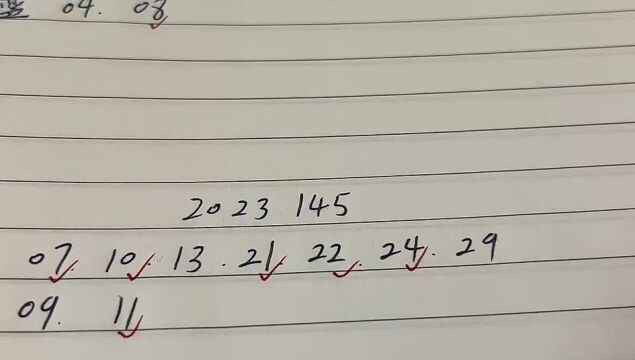 蓝 04. 08
2023 145
07. 10. 13. 21. 22. 24. 29
09. 11